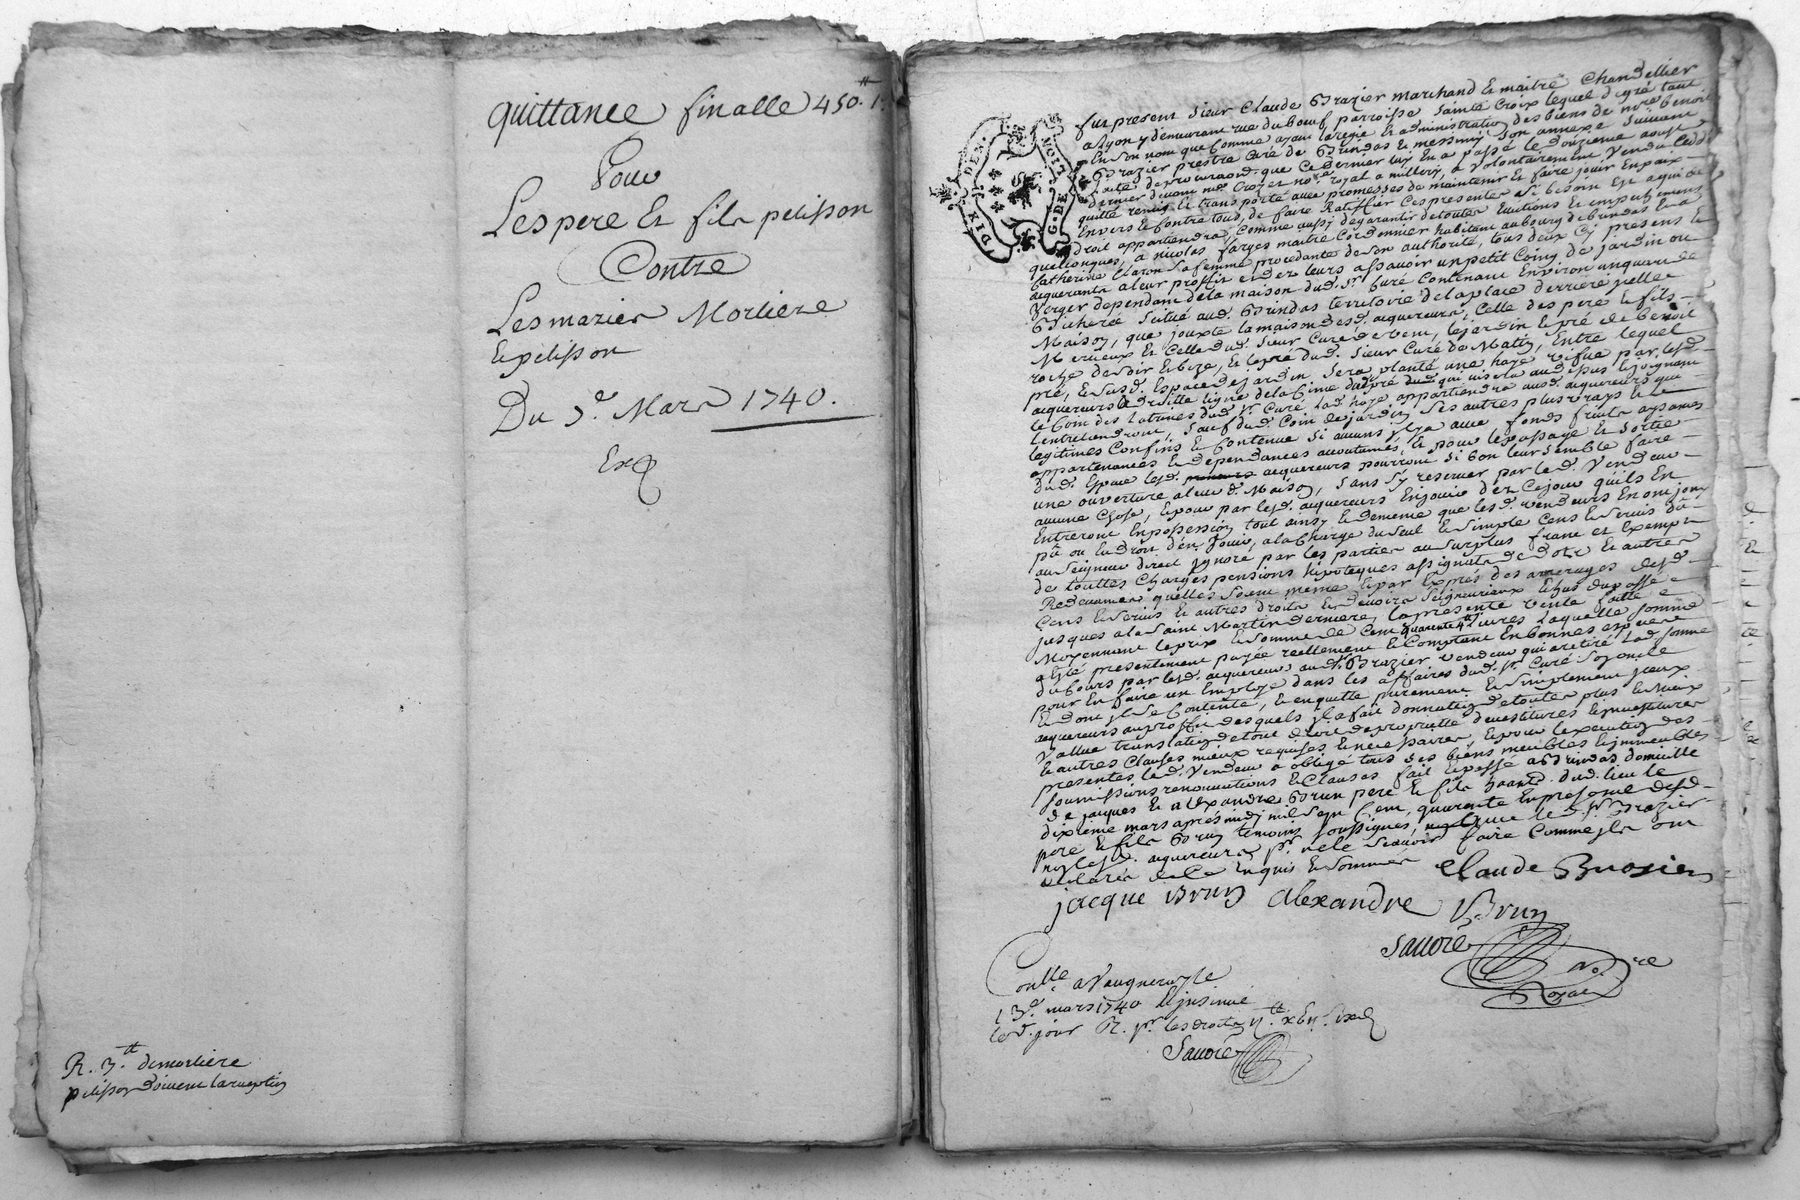 quittance finalle 450.tt 1.
Pour
Les pere et fils pelisson
Contre
Les mariés Morliere
et pelisson
Du 3e. Mars 1740.
Exp
R. 3.tt de morliere
pelisson doivent la reception
G. DE
DIX DEN.
fut present Sieur Claude Brazier marchand et maitre Chandellier
a Lyon y demeurant rue du boeuf parroisse Sainte Croix lequel de gré tant
en son nom que Comme ayant la regie et administration des biens de mre benoit
Brazier prestre Curé de Brindas et messimy son annexe suivant
procuraon. que Ce dernier luy en a passé le douzieme aoust
dernier devant me Crozet nore. royal a millery, a volontairement vendu Cedé
quitté remis et transporté avec promesses de maintenir et faire jouir en paix
envers et Contre tous, de faire Ratiffier Ces presentes si besoin est a qui de
droit appartiendra, Comme aussy de garantir de toutes evictions et empeschements
quelconques, a nicolas farges maitre Cordonnier habitant au bourg de brindas et a
Catherine Claron sa femme procedante de son authorité, tous deux Cy presens et
acquerants a leur proffit et des leurs assavoir un petit Coing de jardin ou
Verger dependant de la maison dud. Sr. Curé Contenant Environ un quart de
Bicherée situé aud. Brindas territoire de la place derriere jcelle
Maison, que jouxte la maison desd. acquereurs, Celle des pere et fils
Mercieux et Celle dud. sieur Curé de vent, le jardin et pré de benoit
roche de soir et bize, et le pré dud. sieur Curé de Matin, Entre lequel
pré, et susd. Espace de jardin sera planté une haye vifve par lesd.
acquereurs a droitte ligne de la Cime dud. pré dud. qui vis la au dessus le joignant
le Coin des latrines dud. Sr. Curé. Lad. haye appartiendra ausd. acquereurs qui
l'entretiendront, sauf dud. Coin de jardin ses autres plus vrays et
legitimes Confins et Contenue si aucuns jl y a avec fonds fruits aysances
appartenances et dependances accoutumés, et pour le passage et sortie
dud. Espace lesd. acquereurs pourront si bon leur semble faire
une ouverture a leur d. Maison, sans s'y reserver par led. Vendeur
aucune Chose, et pour par lesd. acquereurs En jouir dez Ce jour qu'ils En
Entreront En possession tout ainsy et de meme que lesd. vendeurs En ont jouy
pû ou eu droit d'en jouir, a la Charge du seul et simple Cens et servis dû
au Seigneur direct jgnoré par les parties au surplus franc et Exempt
de touttes Charges pensions hipoteques assignats de dots et autres
Redevances quelles soient meme et par Exprés des arrerages desd.
Cens et servis et autres droits et devoirs seigneuriaux Echus du passé
jusques a la saint Martin derniere, la presente vente faitte
Moyennant le prix et somme de Cent quarente 4tt Livres laquelle somme
a Eté presentement payée reellement et Comptant En bonnes especes
du Cours par lesd. acquereurs aud. Sr. Brazier vendeur qui a retiré Lad. somme
pour En faire un Employ dans les affaires dud. Sr. Curé Son oncle
et dont jl se Contente, et en quitte purement et simplement jceux
acquereurs au proffit desquels jl a fait donnation de toutes plus et Mieux
Vallue translation de tout droit de proprieté devestitures et jnvestitures
et autres Clauses mieux requises et necessaires, et pour l'execution des
presentes led. Vendeur a obligé tous ses biens meubles et jmmeubles
soumissions renonciations et Clauses fait et passé a Brindas domicille
de jacques et alexandre Brun pere et fils hbants. dud. lieu le
dixieme mars apres midy mil sept Cent quarante En presence desd.
pere et fils Brun temoins soussignés, avec led. Sr. Brazier
non lesd. acquereurs pr. ne le scavoir faire Comme jls ont
declarés de Ce Enquis et sommés
Claude Brasier
jacque Brun Alexandre Brun
Sauore
nore
Royal
Conlle. a Vaugneray le
13e. mars 1740 et jnsinué
led. jour R. pr. les droits
Sauore